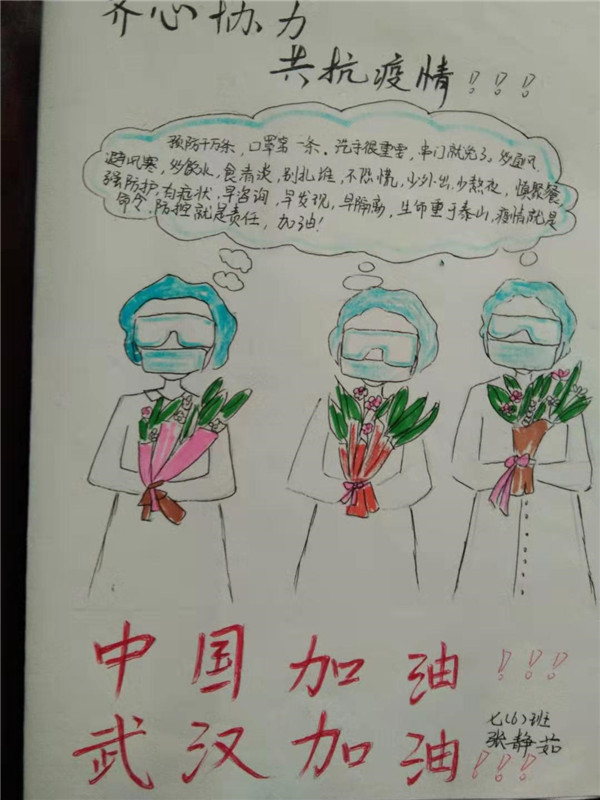 齐心协力
共抗疫情!!!
预防千万条，口罩第一条。洗手很重要，串门就免了。多通风，
避风寒，多饮水，食清淡，别扎堆，不恐慌，少外出，少熬夜，慎聚餐，
强防护，有症状，早咨询，早发现，早隔离，生命重于泰山，疫情就是
命令，防控就是责任，加油!
中国加油!!!
武汉加油!!!
七(6)班
张静茹